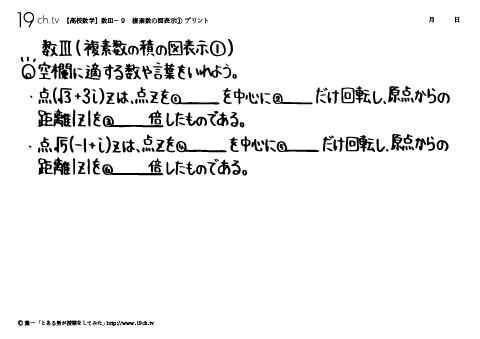 19 ch.tv 【高校数学】数Ⅲ－9 複素数の図表示① プリント 月 日
数Ⅲ(複素数の積の図表示①)
Q 空欄に適する数や言葉をいれよう。
・点(√3+3i)zは、点zを①____を中心に②____だけ回転し、原点からの
距離|z|を③____倍したものである。
・点√5(-1+i)zは、点zを④____を中心に⑤____だけ回転し、原点からの
距離|z|を⑥____倍したものである。
© 葉一「とある男が授業をしてみた」http://www.19ch.tv